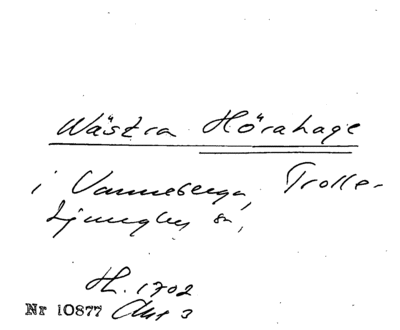 Wästra Hörahage
i Vanneberga, Trolle-
Ljungby sn,
H. 1702
Nr 10877 Akt 3